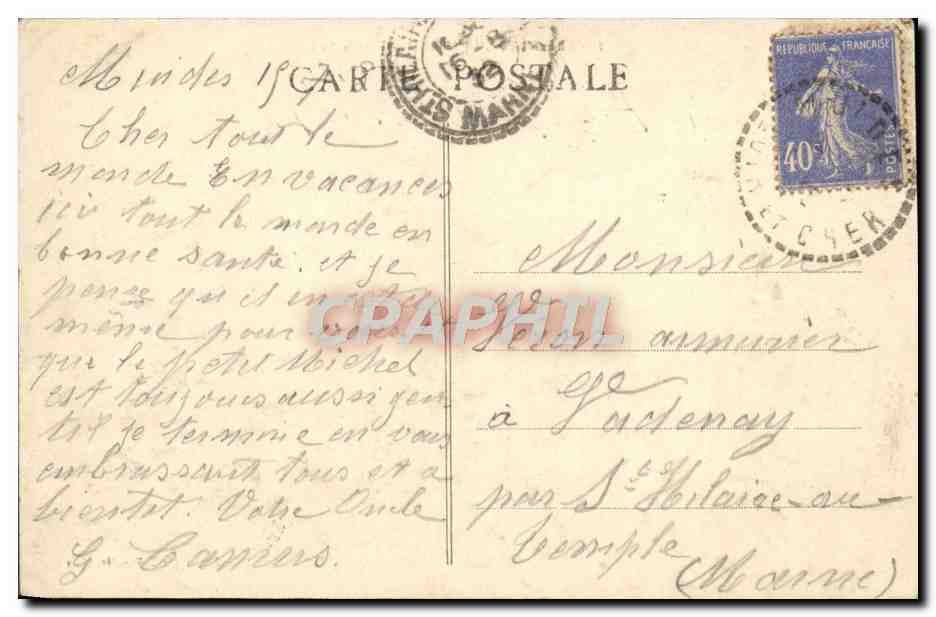 CARTE POSTALE
Cher tout le
monde En vacances
ici tout le monde en
bonne santé. et je
pense qu'il en est de
même pour vous et
que le petit Michel
est toujours aussi gen
til je termine en vous
embrassant tous et a
bientot. Votre Oncle
G. Camus
ST HILAIRE
MARNE
REPUBLIQUE FRANÇAISE
40c
POSTES
CHER
Monsieur
Véron armurier
à Vadenay
par St Hilaire-au-
temple
(Marne)
CPAPHIL